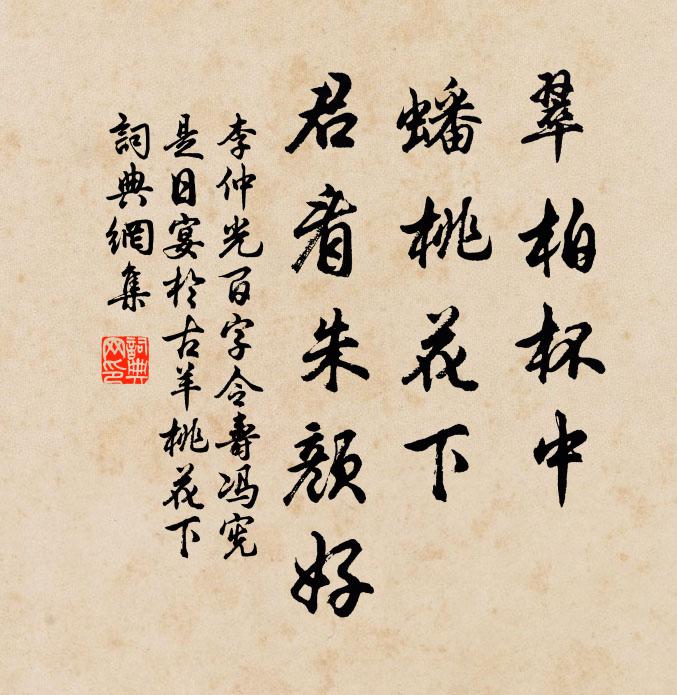 翠柏杯中
蟠桃花下
君看朱颜好
李仲光百字令寿冯宪
是日宴於古羊桃花下
詞典網集
詞典
网印